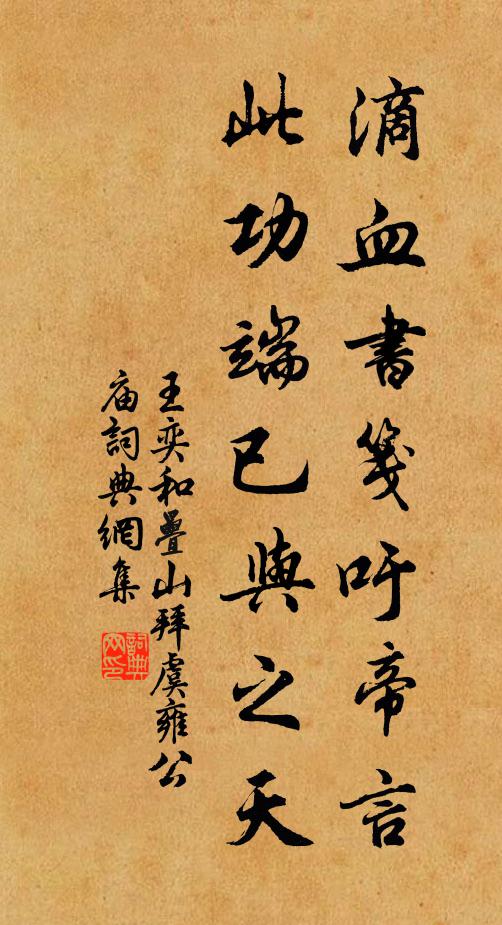 滴血書箋吁帝言
此功端已與之天
王奕和疊山拜虞雍公
庙詞典網集
詞典网印